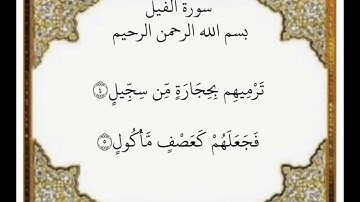 سورة الفيل
بسم الله الرحمن الرحيم
تَرْمِيهِم بِحِجَارَةٍ مِّن سِجِّيلٍ ﴿٤﴾
فَجَعَلَهُمْ كَعَصْفٍ مَّأْكُولٍ ﴿٥﴾